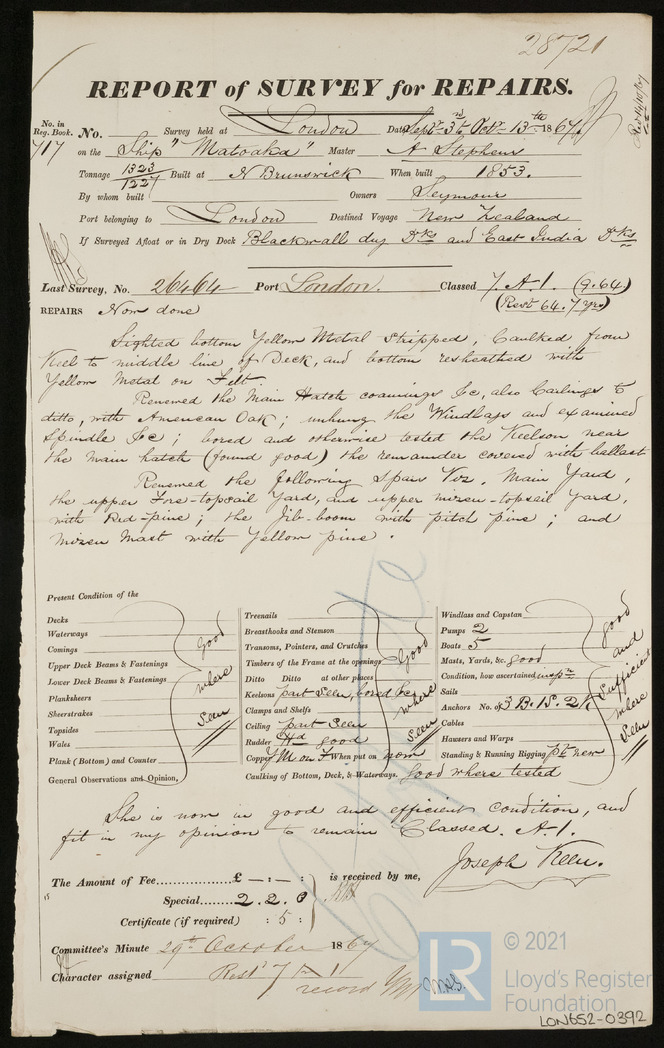 28721
REPORT of SURVEY for REPAIRS.
No. in Reg. Book.
717
No. Survey held at London Date Sept 3rd to Octr 13th 1867
on the Ship "Matoaka" Master A Stephens
Tonnage 1323/1227 Built at N Brunswick When built 1853.
By whom built Owners Seymour
Port belonging to London Destined Voyage New Zealand
If Surveyed Afloat or in Dry Dock Blackwall dry Dks and East India Dks
Last Survey, No. 26464 Port London. Classed 7. A1. (9.64)
(Rest 64. 7 yrs)
REPAIRS Now done
Sighted bottom Yellow Metal Stripped, Caulked from
Keel to middle line of Deck, and bottom resheathed with
Yellow Metal on Felt.
Renewed the Main Hatch coamings &c, also Carlings to
ditto, with American Oak; unhung the Windlass and examined
Spindle &c; bored and otherwise tested the Keelson near
the main hatch (found good) the remainder covered with ballast
Renewed the following Spars Viz. Main Yard,
the upper Fore-topsail Yard, and upper mizen-topsail Yard,
with Red-pine; the Jib-boom with pitch pine; and
mizen Mast with Yellow pine.
Present Condition of the
Decks
Waterways
Comings
Upper Deck Beams & Fastenings
Lower Deck Beams & Fastenings
Planksheers
Sheerstrakes
Topsides
Wales
Plank (Bottom) and Counter
good where seen
General Observations and Opinion,
Treenails
Breasthooks and Stemson
Transons, Pointers, and Crutches
Timbers of the Frame at the openings
Ditto Ditto at other places
Keelsons part seen, bored &c
Clamps and Shelfs
Ceiling part seen
Rudder Hd good
Copper YM on F When put on now
Good where seen
Caulking of Bottom, Deck, & Waterways. Good where tested
Windlass and Capstan
Pumps 2
Boats 5
Masts, Yards, &c. good
Condition, how ascertained
Sails
Anchors No. of 3 B. 1S. 2K
Cables
Hawsers and Warps
Standing & Running Rigging pt new
good and sufficient where seen
She is now in good and efficient condition, and
fit in my opinion to remain Classed. A1.
Joseph Keen.
The Amount of Fee............... £ — : — : is received by me,
Special........ 2. 2. 0
Certificate (if required) : 5 :
Committee's Minute 29th October 1867
Character assigned Rest 7 A 1
record YM
LR
© 2021
Lloyd's Register
Foundation
LON652-0392